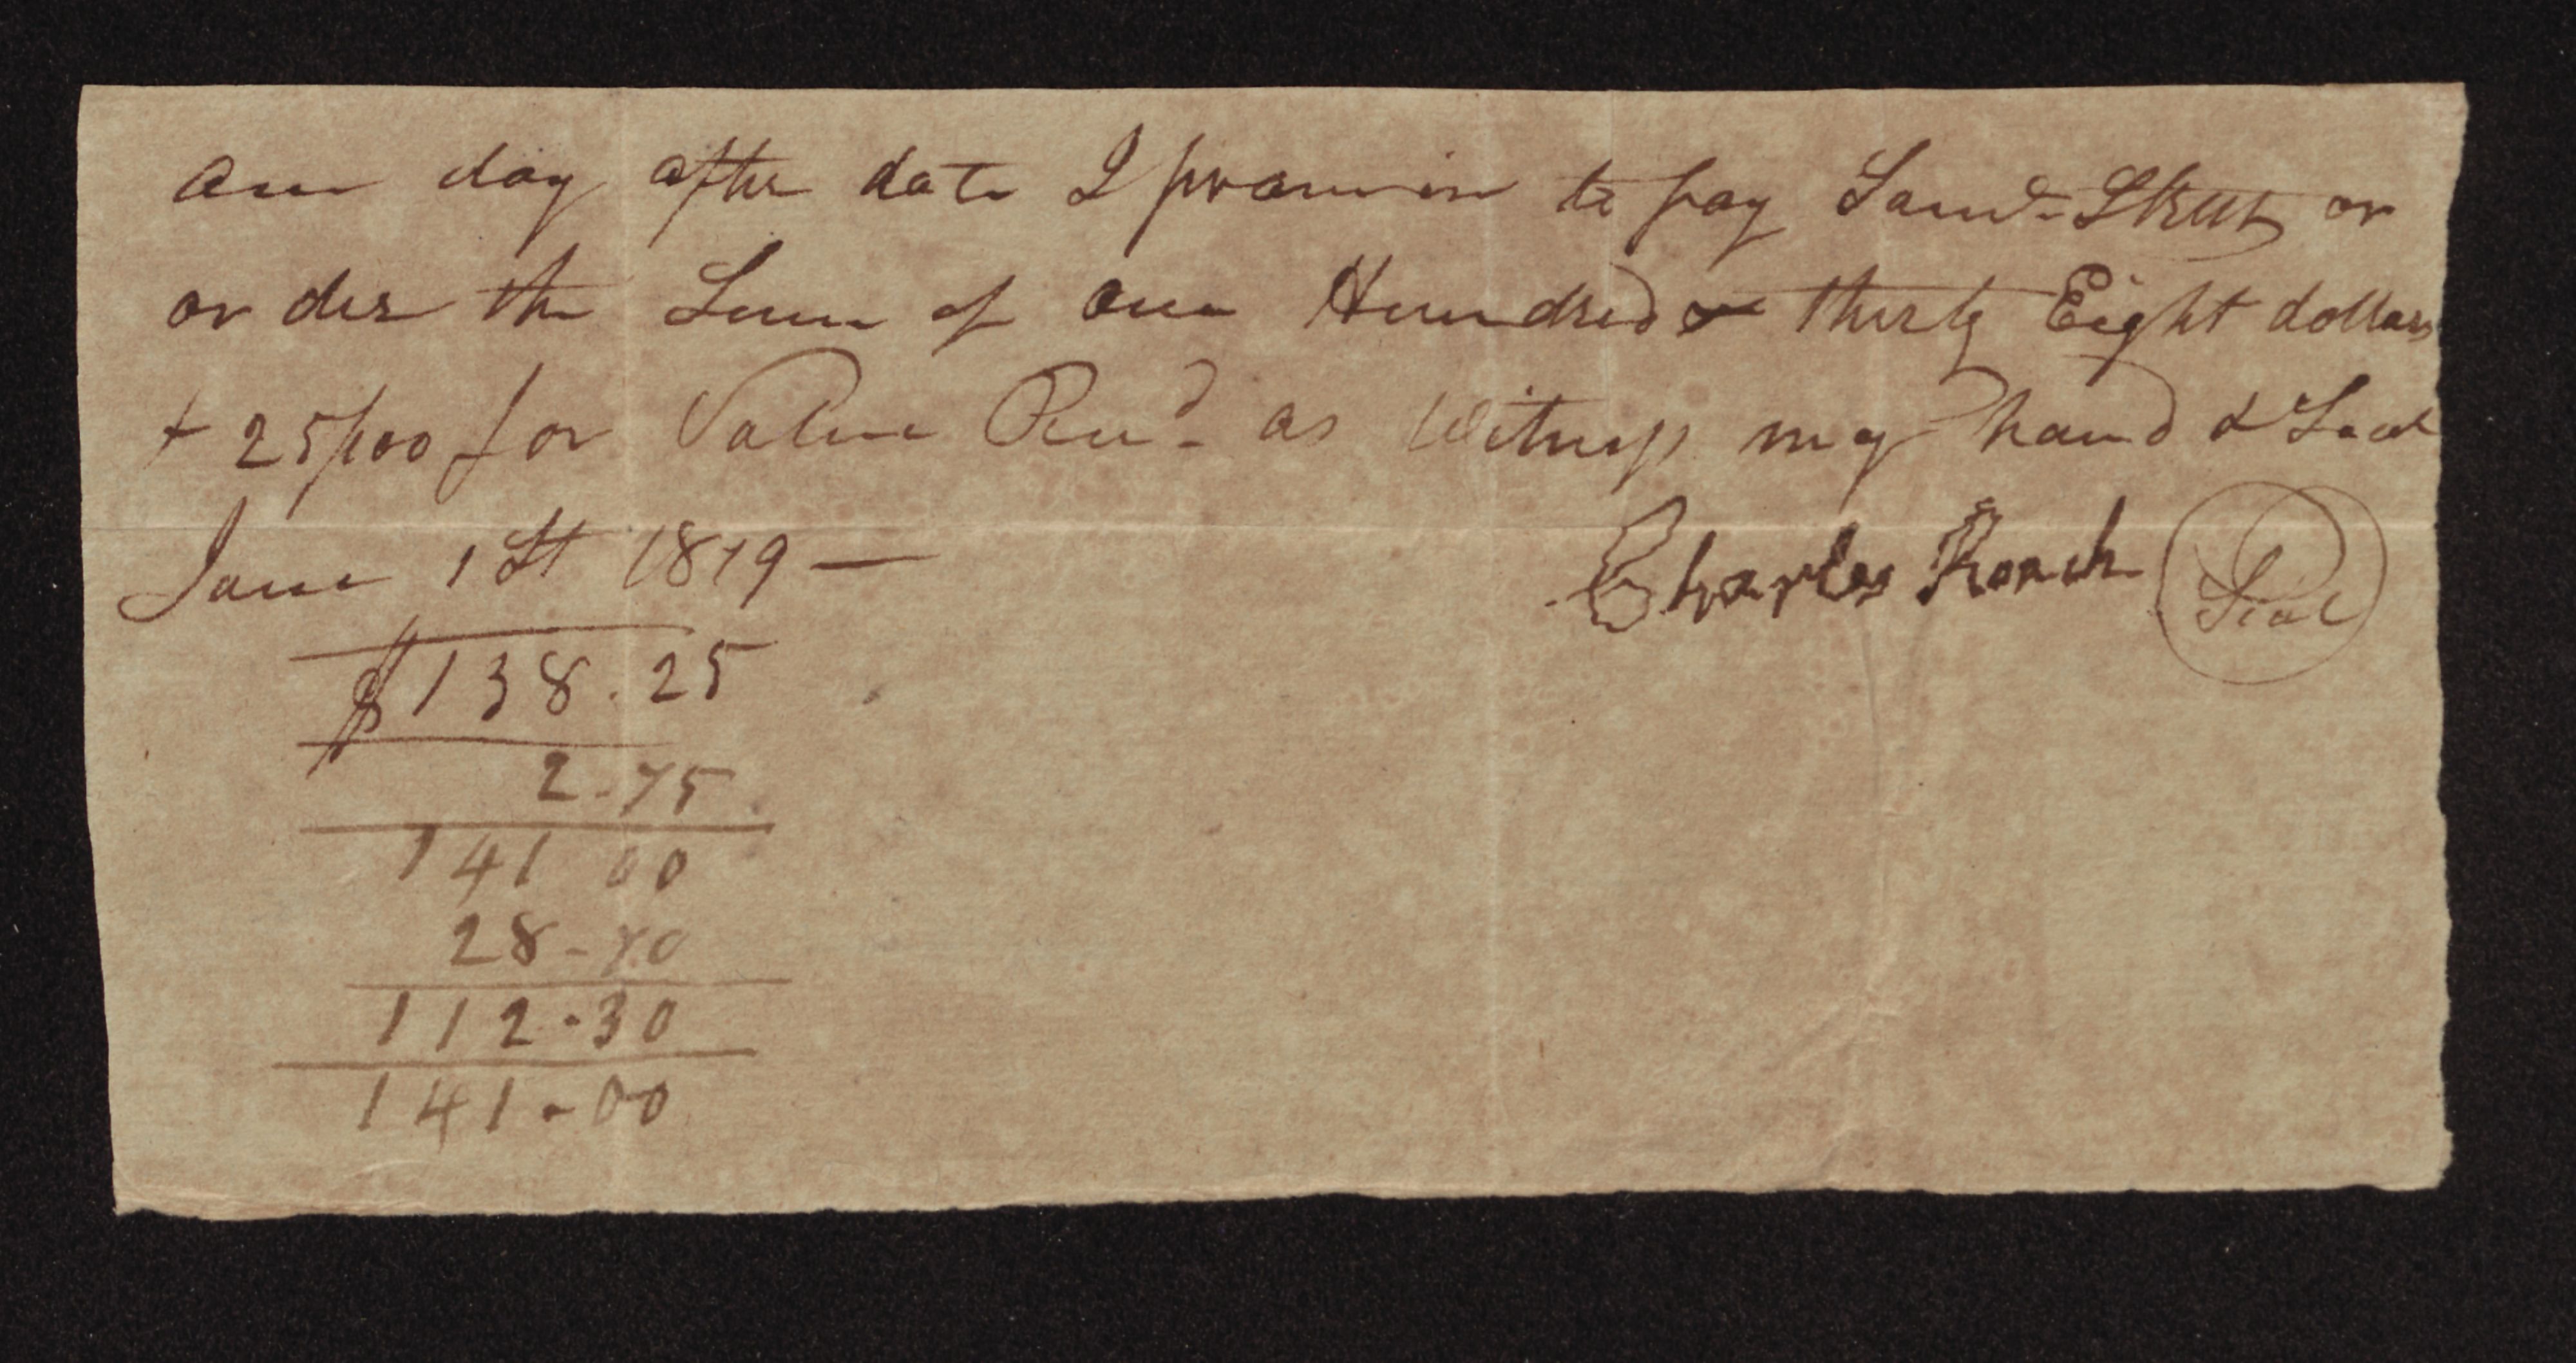 one day after date I promise to pay Saml. Street or
or der the Sum of one Hundred & thirty Eight dollars
+ 25/100 for Value Recd. as Witness my hand & Seal
June 1 St 1819 —
Charles Roach Seal
$138.25
2.75
141 00
28-70
112.30
141-00